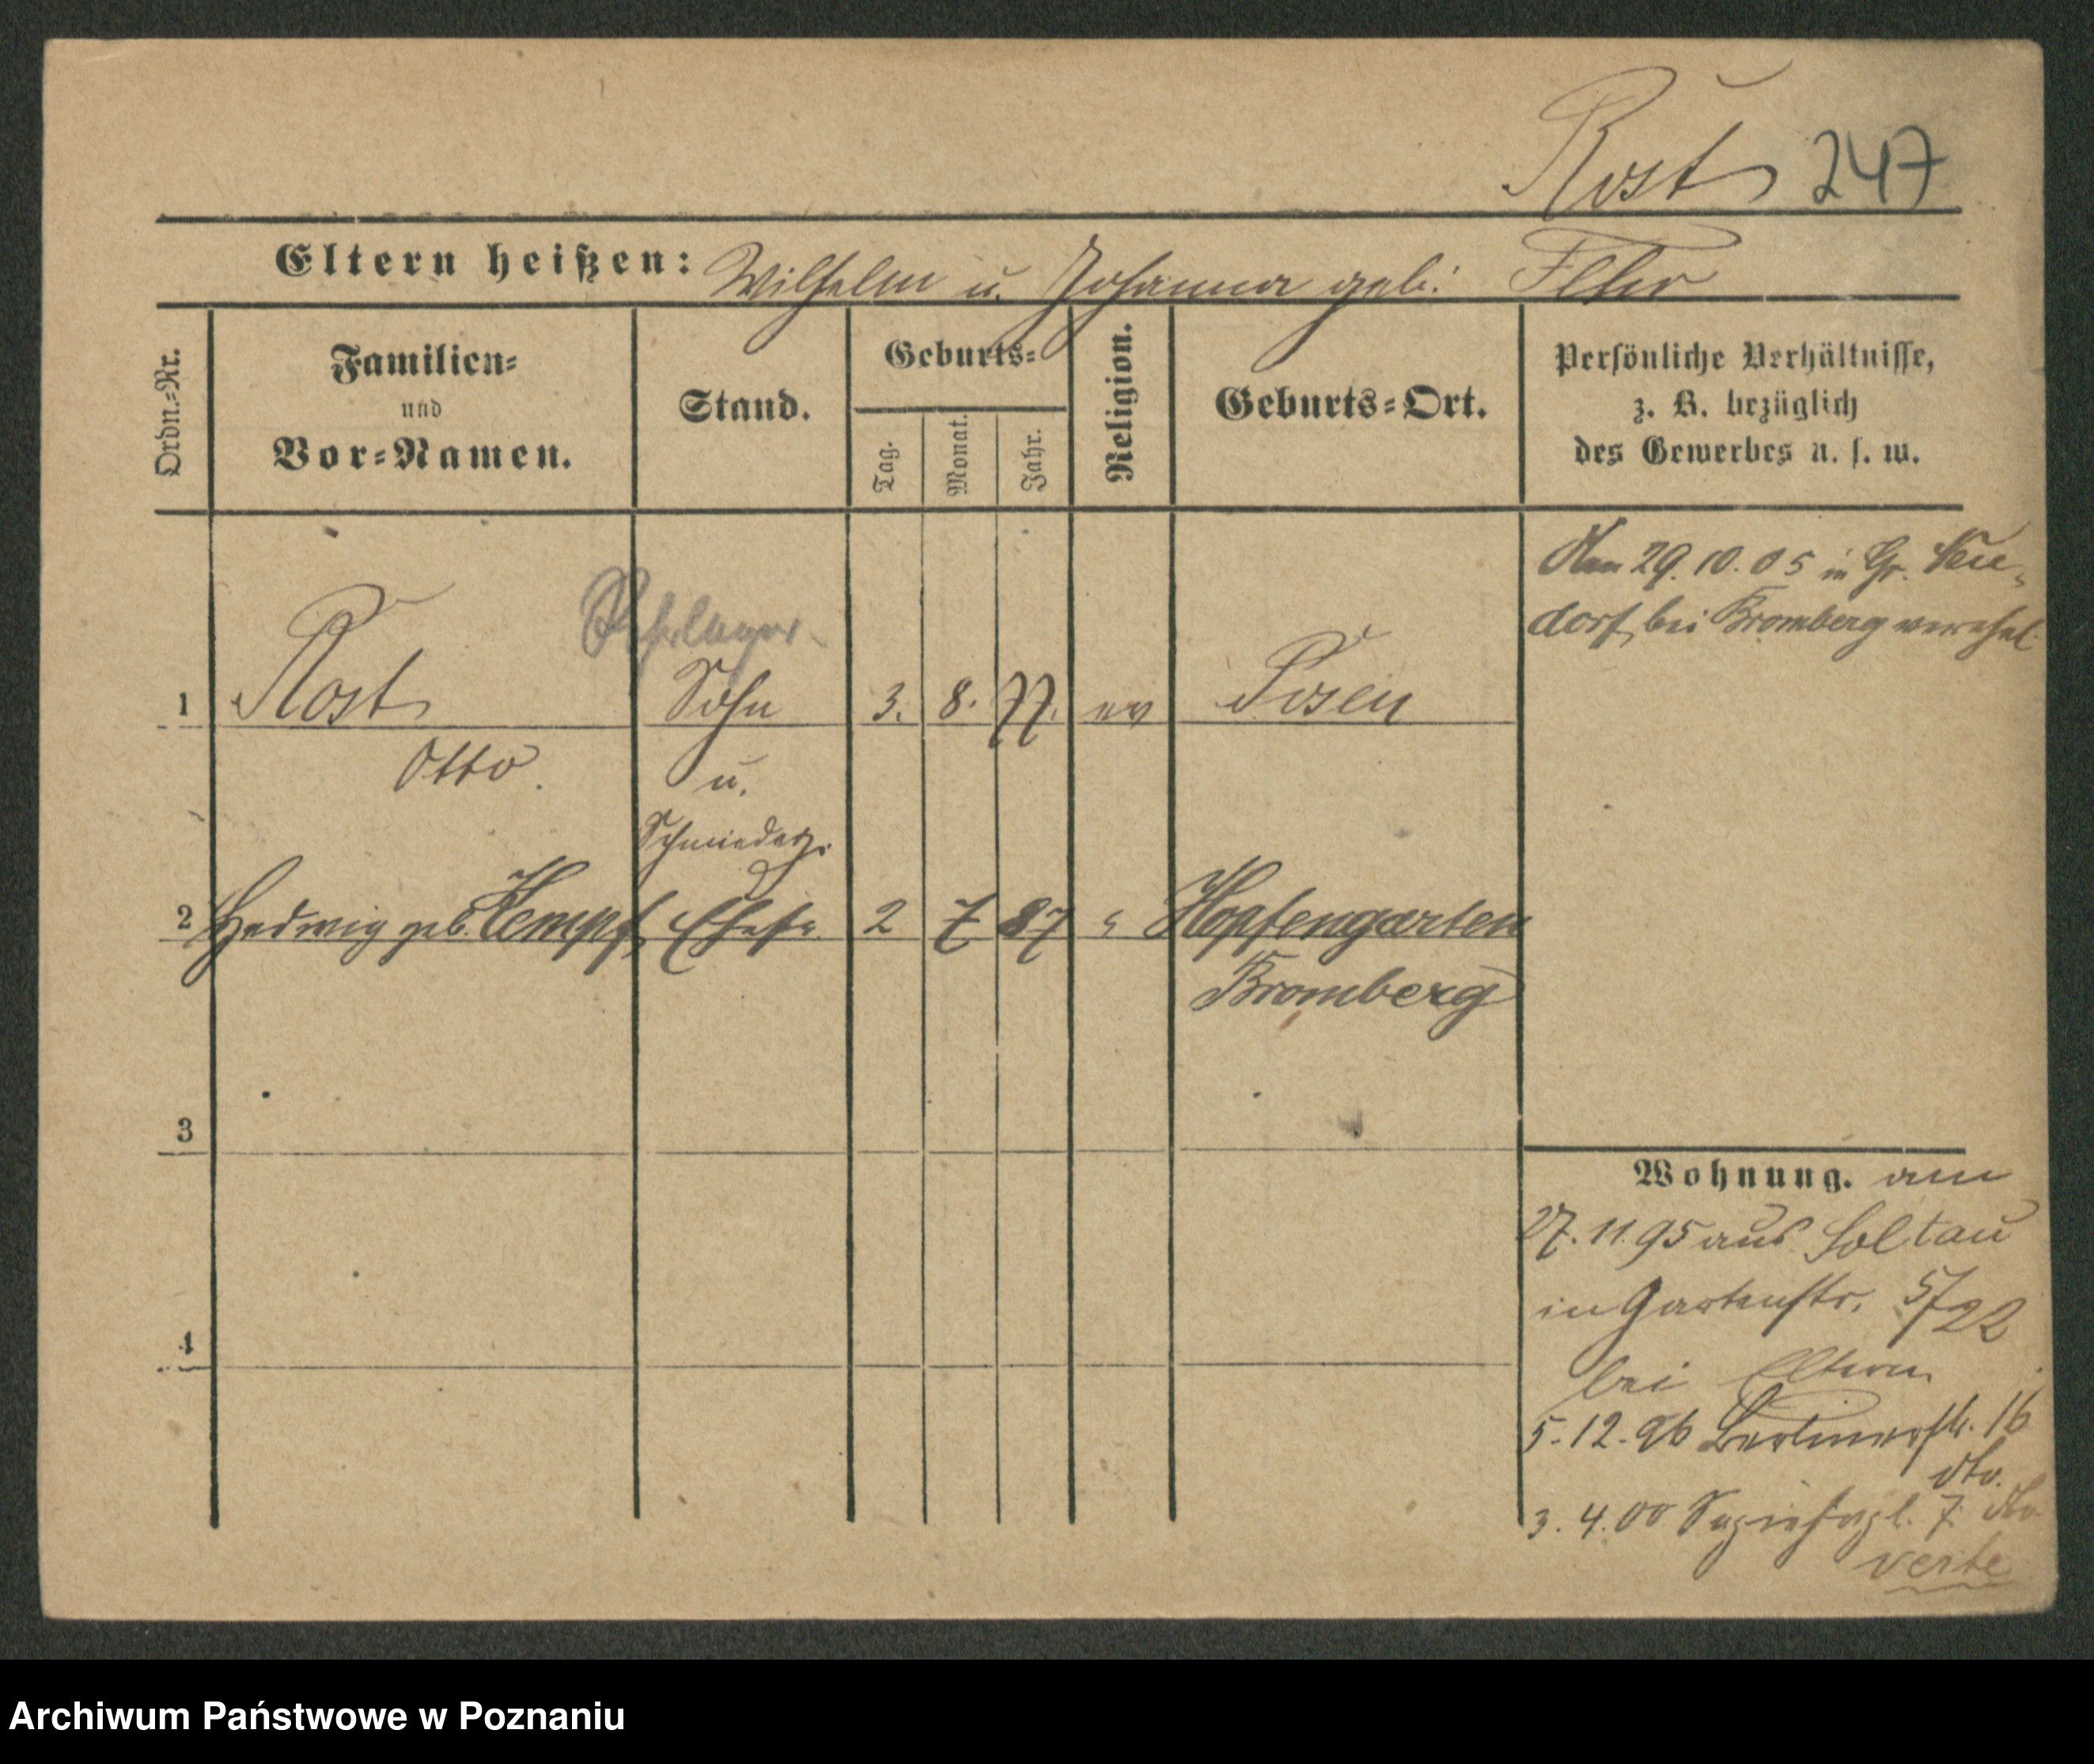 Rost 247
Eltern heißen: Wilhelm u. Johanna geb:
Ordn.-Nr.
Familien-
und
Vor-Namen.
Stand.
Geburts-
Tag.
Monat.
Jahr.
Religion.
Geburts-Ort.
Persönliche Verhältnisse,
z. B. bezüglich
des Gewerbes u. s. w.
Am 29.10.05 in Gr. Neu-
dorf bei Bromberg verehel.
1 Rost Sohn 3. 8. 77. ev Posen
Otto. u.
Schmiedeg.
2 Hedwig geb. Kempf Ehefr. 2 7 87 " Hopfengarten
Bromberg
3
4
Wohnung. am
27.11.95 aus Soltau
in Gartenstr. 5/22
bei Eltern
5.12.96 Berlinerstr. 16
dto.
3.4.00 7. dto.
verte
Archiwum Państwowe w Poznaniu